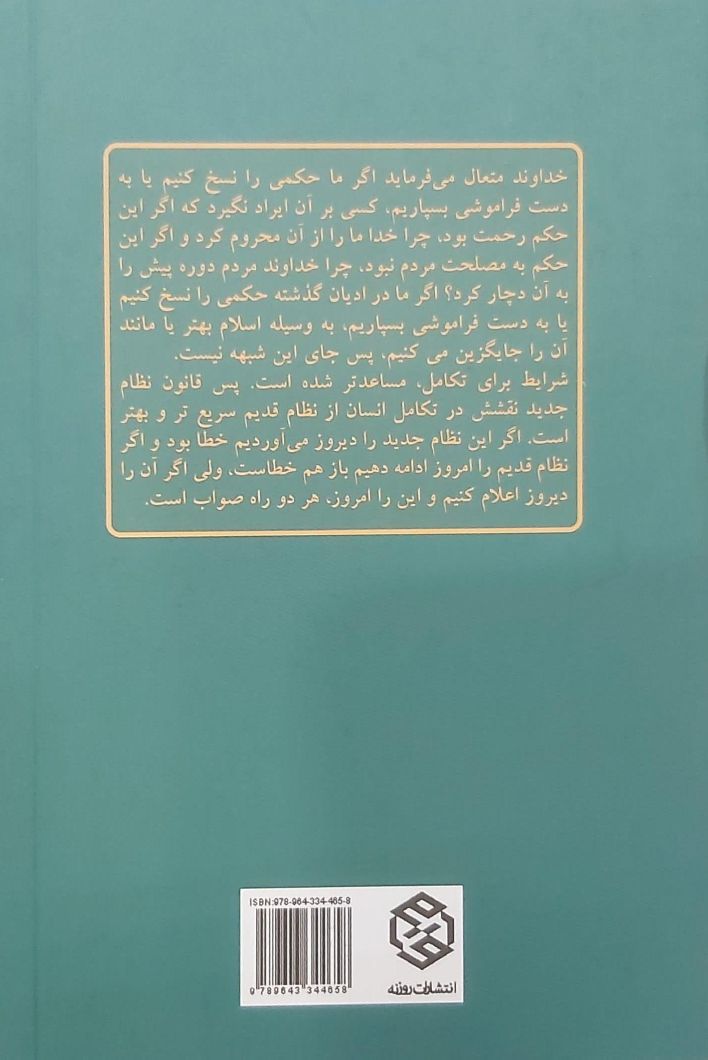 خداوند متعال می‌فرماید اگر ما حکمی را نسخ کنیم یا به
دست فراموشی بسپاریم، کسی بر آن ایراد نگیرد که اگر این
حکم رحمت بود، چرا خدا ما را از آن محروم کرد و اگر این
حکم به مصلحت مردم نبود، چرا خداوند مردم دوره پیش را
به آن دچار کرد؟ اگر ما در ادیان گذشته حکمی را نسخ کنیم
یا به دست فراموشی بسپاریم، به وسیله اسلام بهتر یا مانند
آن را جایگزین می کنیم، پس جای این شبهه نیست.
شرایط برای تکامل، مساعدتر شده است. پس قانون نظام
جدید نقشش در تکامل انسان از نظام قدیم سریع تر و بهتر
است. اگر این نظام جدید را دیروز می‌آوردیم خطا بود و اگر
نظام قدیم را امروز ادامه دهیم باز هم خطاست، ولی اگر آن را
دیروز اعلام کنیم و این را امروز، هر دو راه صواب است.
ISBN:978-964-334-465-8
9 789643 344658
انتشارات روزنه